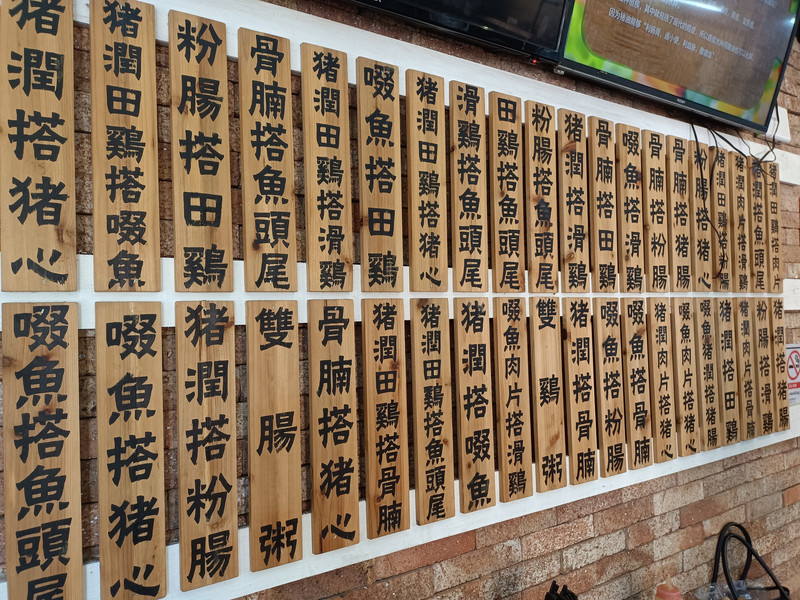 猪潤搭猪心
猪潤田鷄搭啜魚
粉腸搭田鷄
骨腩搭魚頭尾
猪潤田鷄搭滑鷄
啜魚搭田鷄
猪潤田鷄搭猪心
滑鷄搭魚頭尾
田鷄搭魚頭尾
粉腸搭魚頭尾
猪潤搭滑鷄
骨腩搭田鷄
啜魚搭滑鷄
骨腩搭粉腸
骨腩搭猪腸
粉腸搭猪心
猪潤田鷄搭粉腸
猪潤肉片搭滑鷄
猪潤搭魚頭尾
猪潤田鷄搭肉片
啜魚搭魚頭尾
啜魚搭猪心
猪潤搭粉腸
雙腸粥
骨腩搭猪心
猪潤田鷄搭骨腩
猪潤田鷄搭魚尾
猪潤搭啜魚
啜魚肉片搭滑鷄
雙鷄粥
猪潤搭骨腩
啜魚搭粉腸
啜魚搭骨腩
猪潤肉片搭猪腸
啜魚肉片搭猪腸
啜魚猪潤搭猪腸
猪潤搭田鷄
猪潤肉片搭骨腩
粉腸搭滑鷄
猪潤滑鷄搭猪腸